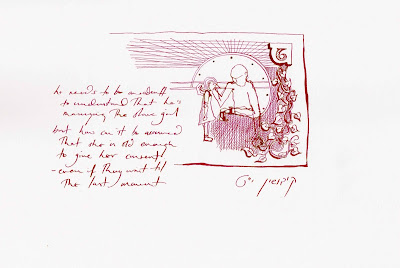 he needs to be an adult
to understand that he's
marrying the slave girl
but how can it be assumed
that she is old enough
to give her consent
- even if they wait til
the last moment
קידושין י"ט